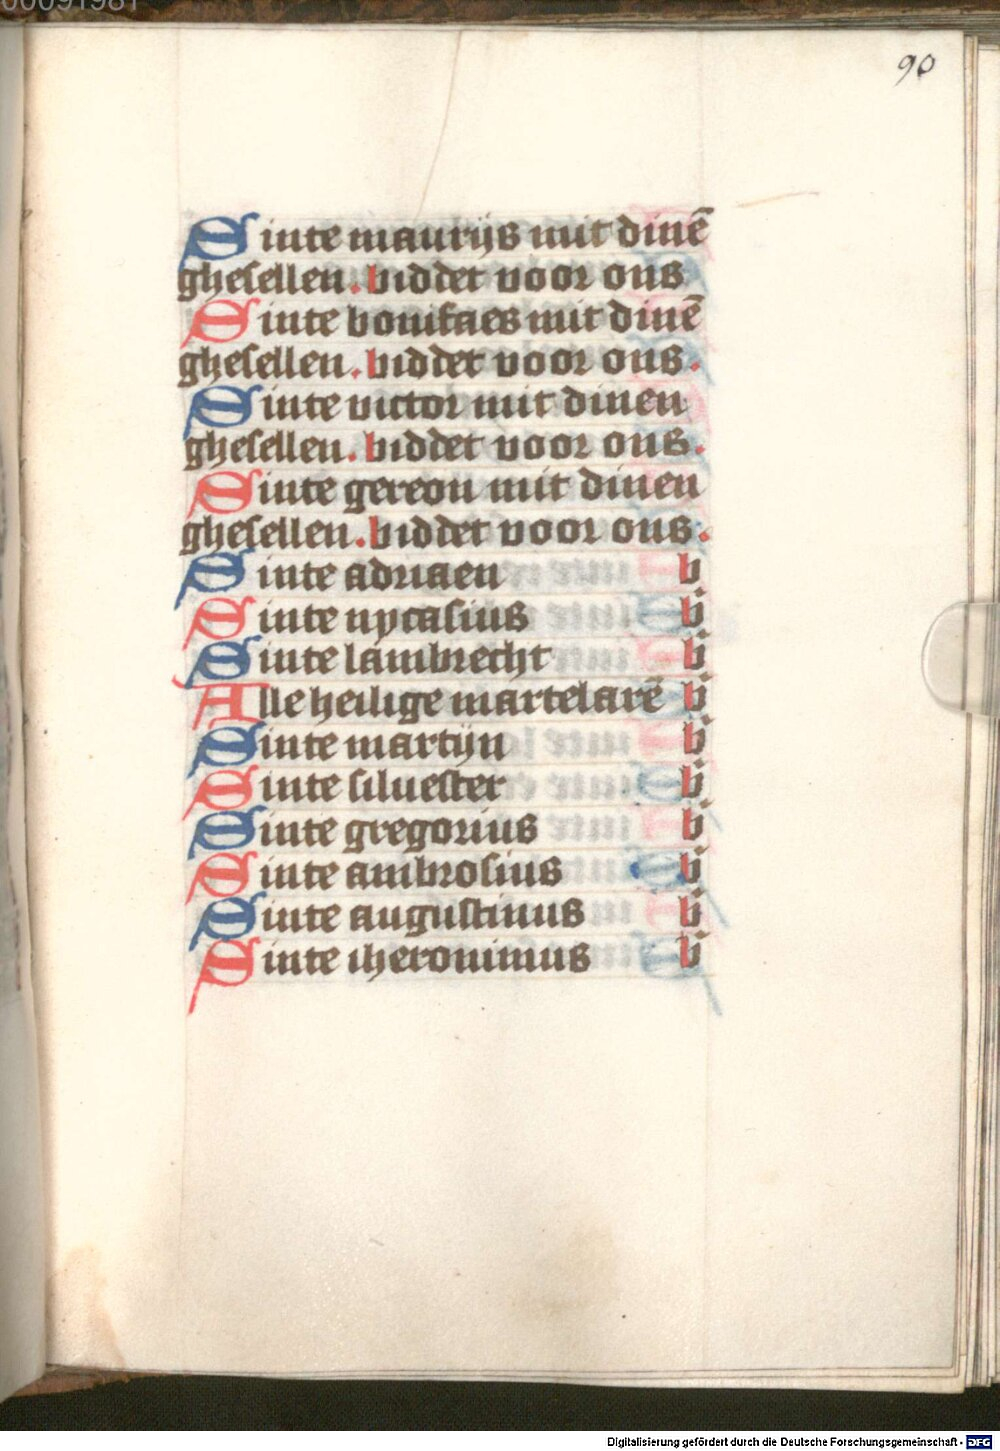 90
Sinte maurijs mit dinē
ghesellen. biddet voor ons
Sinte bonifaes mit dinē
ghesellen. biddet voor ons.
Sinte victor mit dinen
ghesellen. biddet voor ons.
Sinte gereon mit dinen
ghesellen. biddet voor ons.
Sinte adriaen b
Sinte nycasius b
Sinte lambrecht b
Alle heilige martelarē b
Sinte martijn b
Sinte siluester b
Sinte gregorius b
Sinte ambrosius b
Sinte augustinus b
Sinte iheronimus b
Digitalisierung gefördert durch die Deutsche Forschungsgemeinschaft - DFG